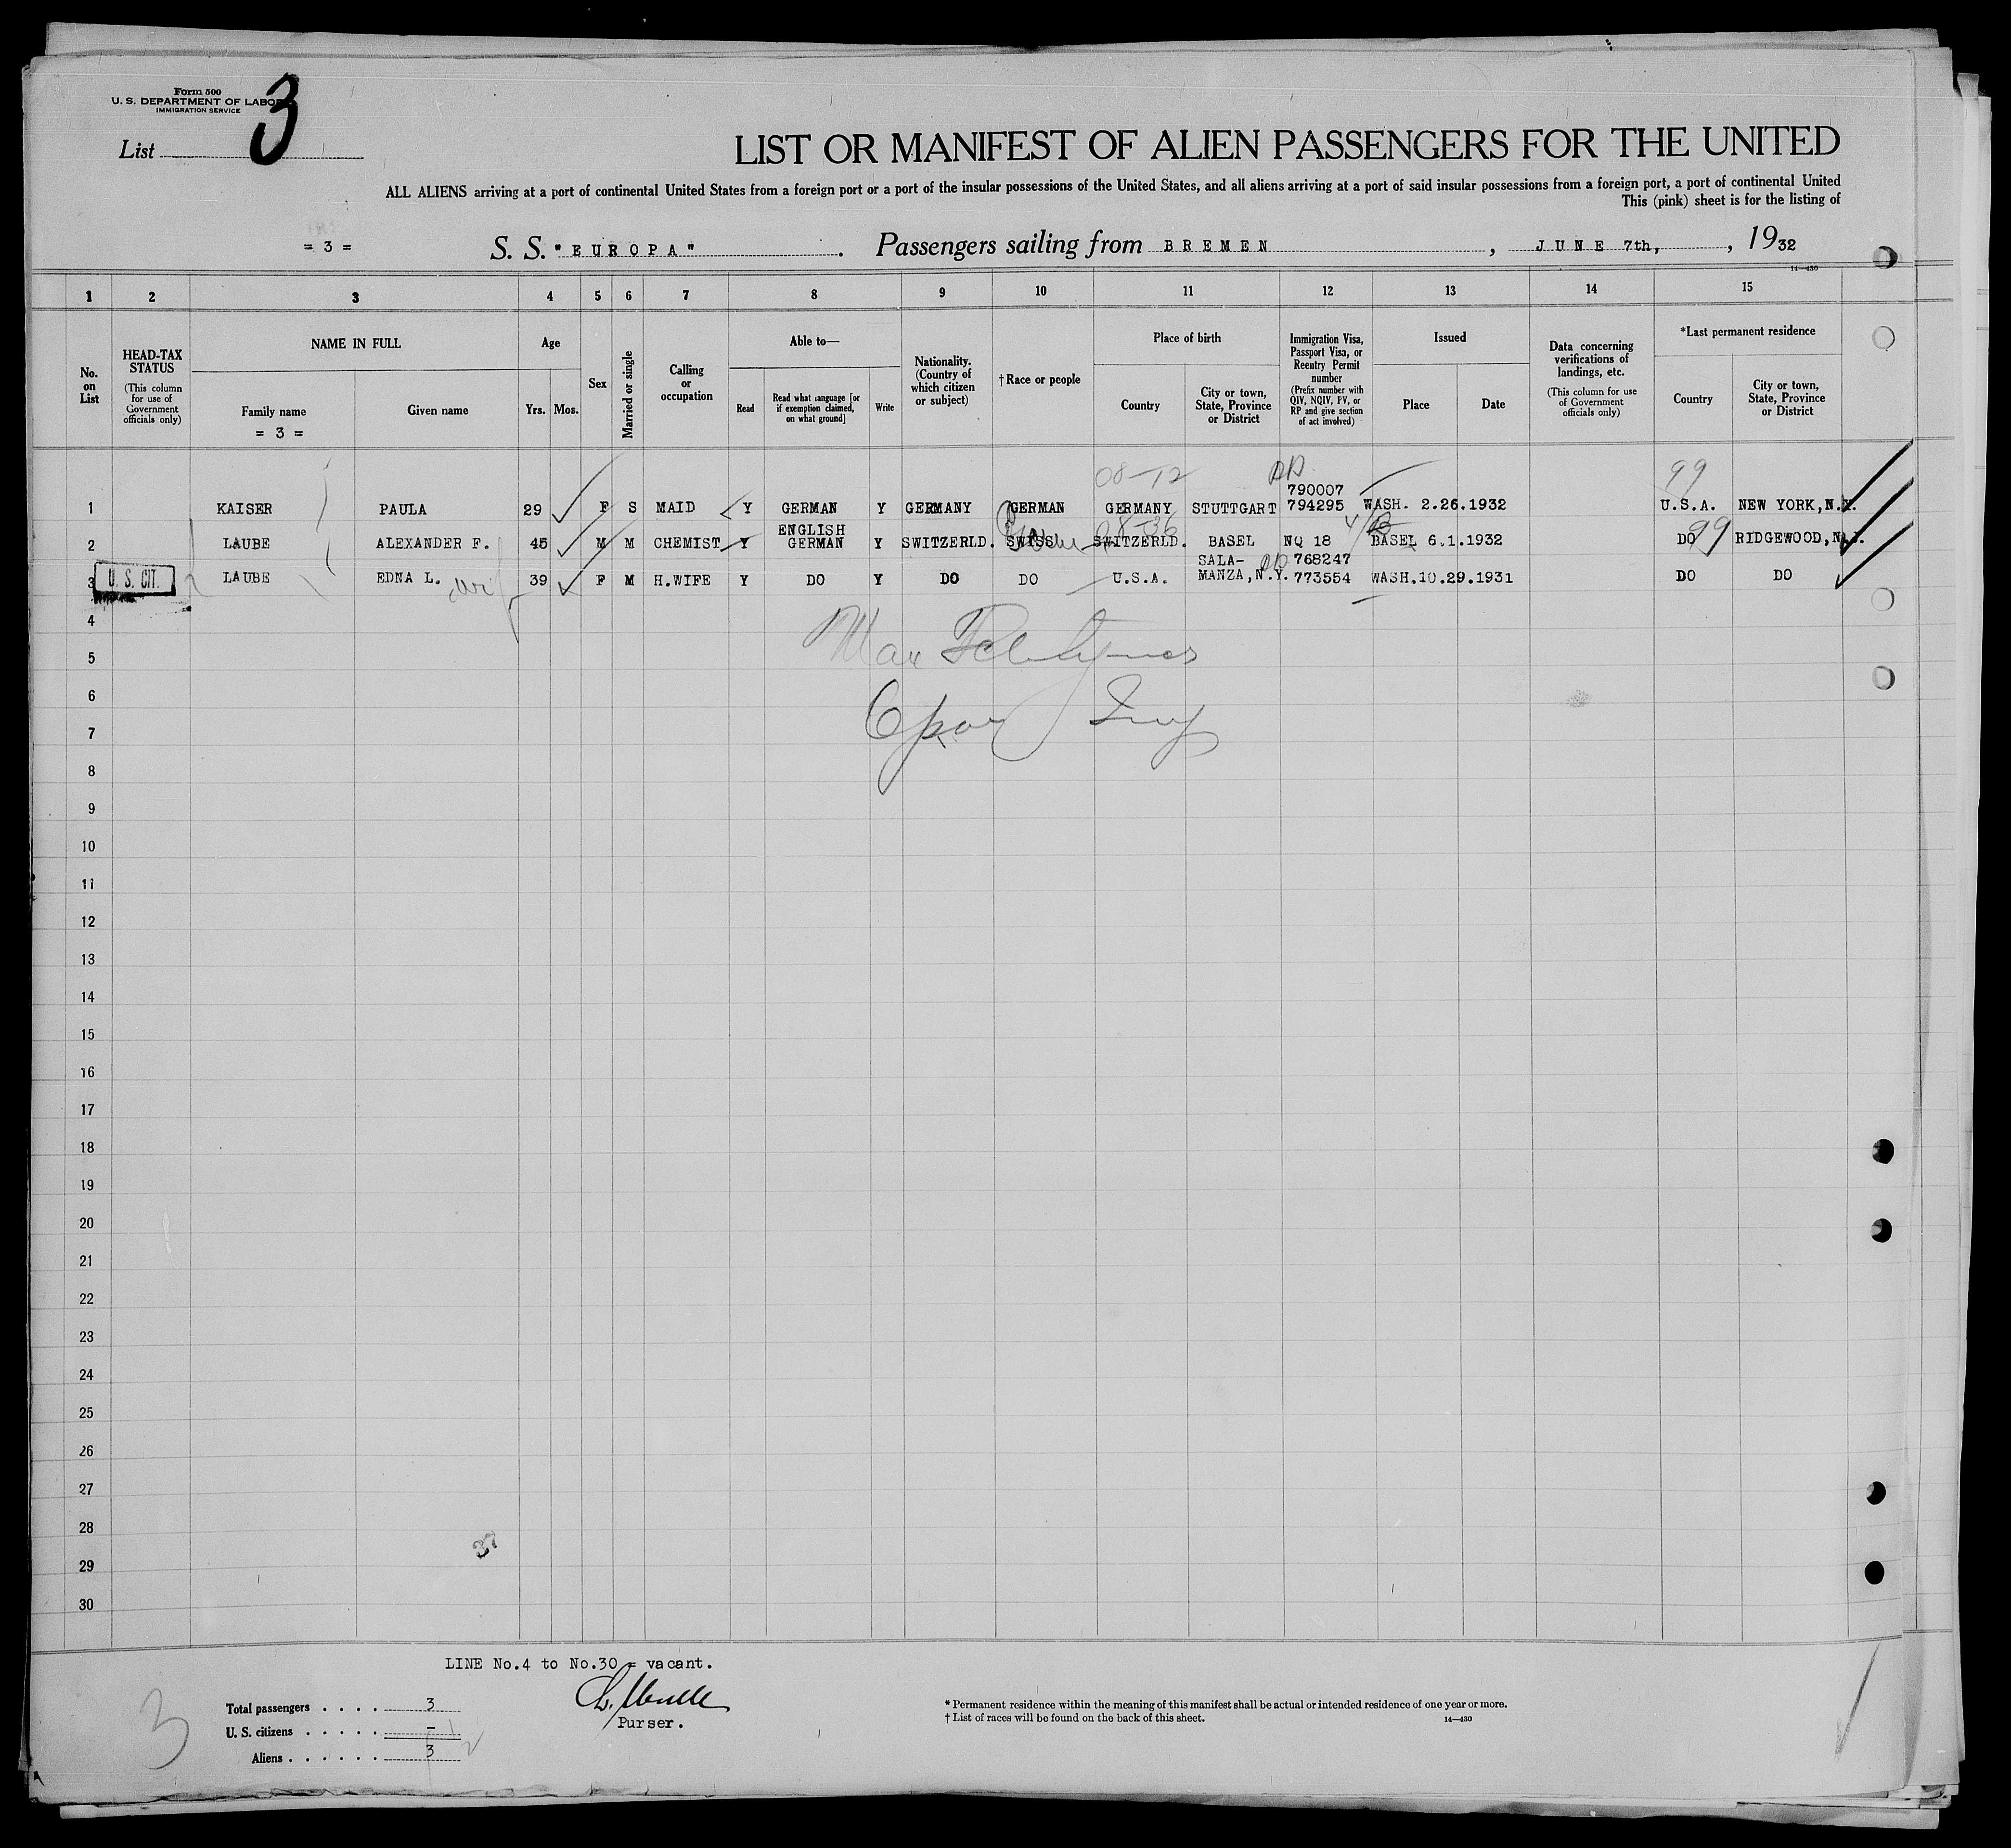 Form 500
U. S. DEPARTMENT OF LABOR
IMMIGRATION SERVICE
3
List
LIST OR MANIFEST OF ALIEN PASSENGERS FOR THE UNITED
ALL ALIENS arriving at a port of continental United States from a foreign port or a port of the insular possessions of the United States, and all aliens arriving at a port of said insular possessions from a foreign port, a port of continental United
This (pink) sheet is for the listing of
= 3 = S. S. "EUROPA" . Passengers sailing from BREMEN , JUNE 7th, , 1932
14—430
1 2 3 4 5 6 7 8 9 10 11 12 13 14 15
No. on List
HEAD-TAX STATUS
(This column for use of Government officials only)
NAME IN FULL
Family name
= 3 =
Given name
Age
Yrs. Mos.
Sex
Married or single
Calling or occupation
Able to—
Read
Read what language [or if exemption claimed, on what ground]
Write
Nationality. (Country of which citizen or subject)
†Race or people
Place of birth
Country
City or town, State, Province or District
Immigration Visa, Passport Visa, or Reentry Permit number
(Prefix number with QIV, NQIV, PV, or RP and give section of act involved)
Issued
Place
Date
Data concerning verifications of landings, etc.
(This column for use of Government officials only)
*Last permanent residence
Country
City or town, State, Province or District
08-72 99
790007
1 KAISER PAULA 29 F S MAID Y GERMAN Y GERMANY GERMAN GERMANY STUTTGART 794295 WASH. 2.26.1932 U.S.A. NEW YORK,N.Y.
ENGLISH
2 LAUBE ALEXANDER F. 45 M M CHEMIST Y GERMAN Y SWITZERLD. SWISS SWITZERLD. BASEL NQ 18 BASEL 6.1.1932 DO 99 RIDGEWOOD,N.J.
SALA- 768247
3 U. S. CIT. LAUBE EDNA L. wife 39 F M H.WIFE Y DO Y DO DO U.S.A. MANZA,N.Y. 773554 WASH.10.29.1931 DO DO
4
5 Max
6
7
8
9
10
11
12
13
14
15
16
17
18
19
20
21
22
23
24
25
26
27
28
37
29
30
LINE No.4 to No.30 = vacant.
Purser.
3
Total passengers . . . . 3
U. S. citizens . . . . . – 1
Aliens . . . . . . 3 2
* Permanent residence within the meaning of this manifest shall be actual or intended residence of one year or more.
† List of races will be found on the back of this sheet.
14—430